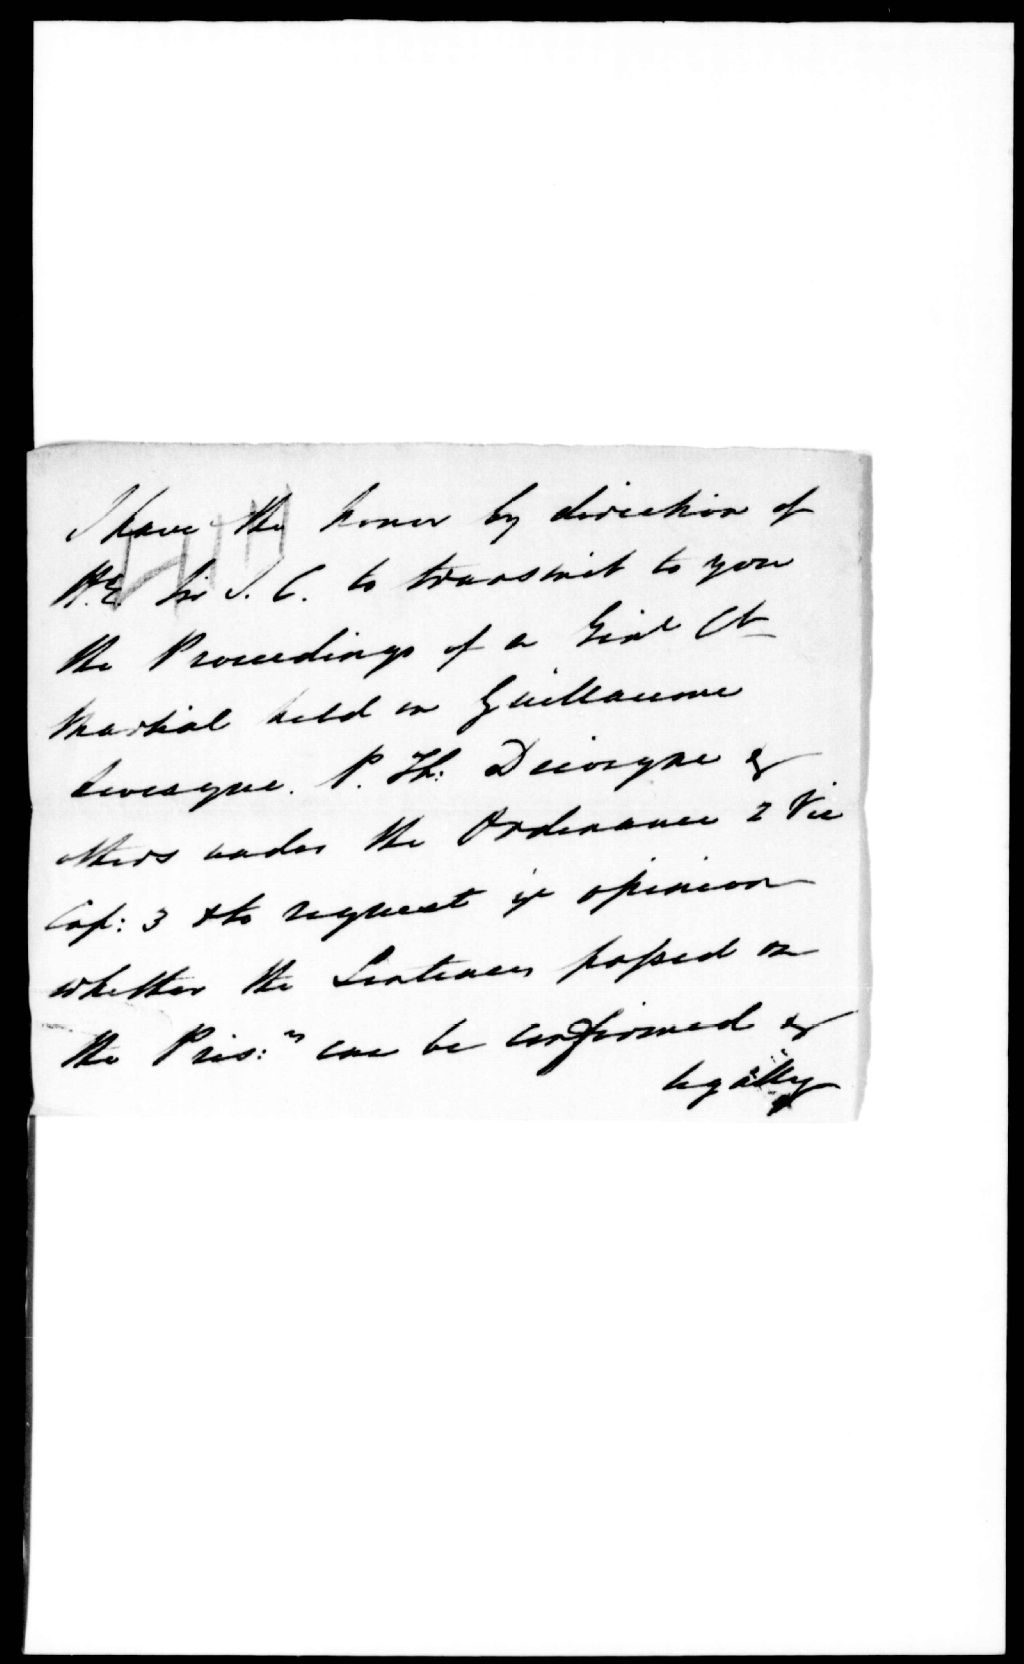 I have the honor by direction of
H.E. Sir J. C. to transmit to you
the Proceedings of a Genl Ct
Martial held on Guillaume
Levesque. P. Th: Decoigne &
others under the Ordinance 2 Vic
Cap: 3 & to request yr opinion
whether the Sentences passed on
the Pris:rs can be confirmed &
legally